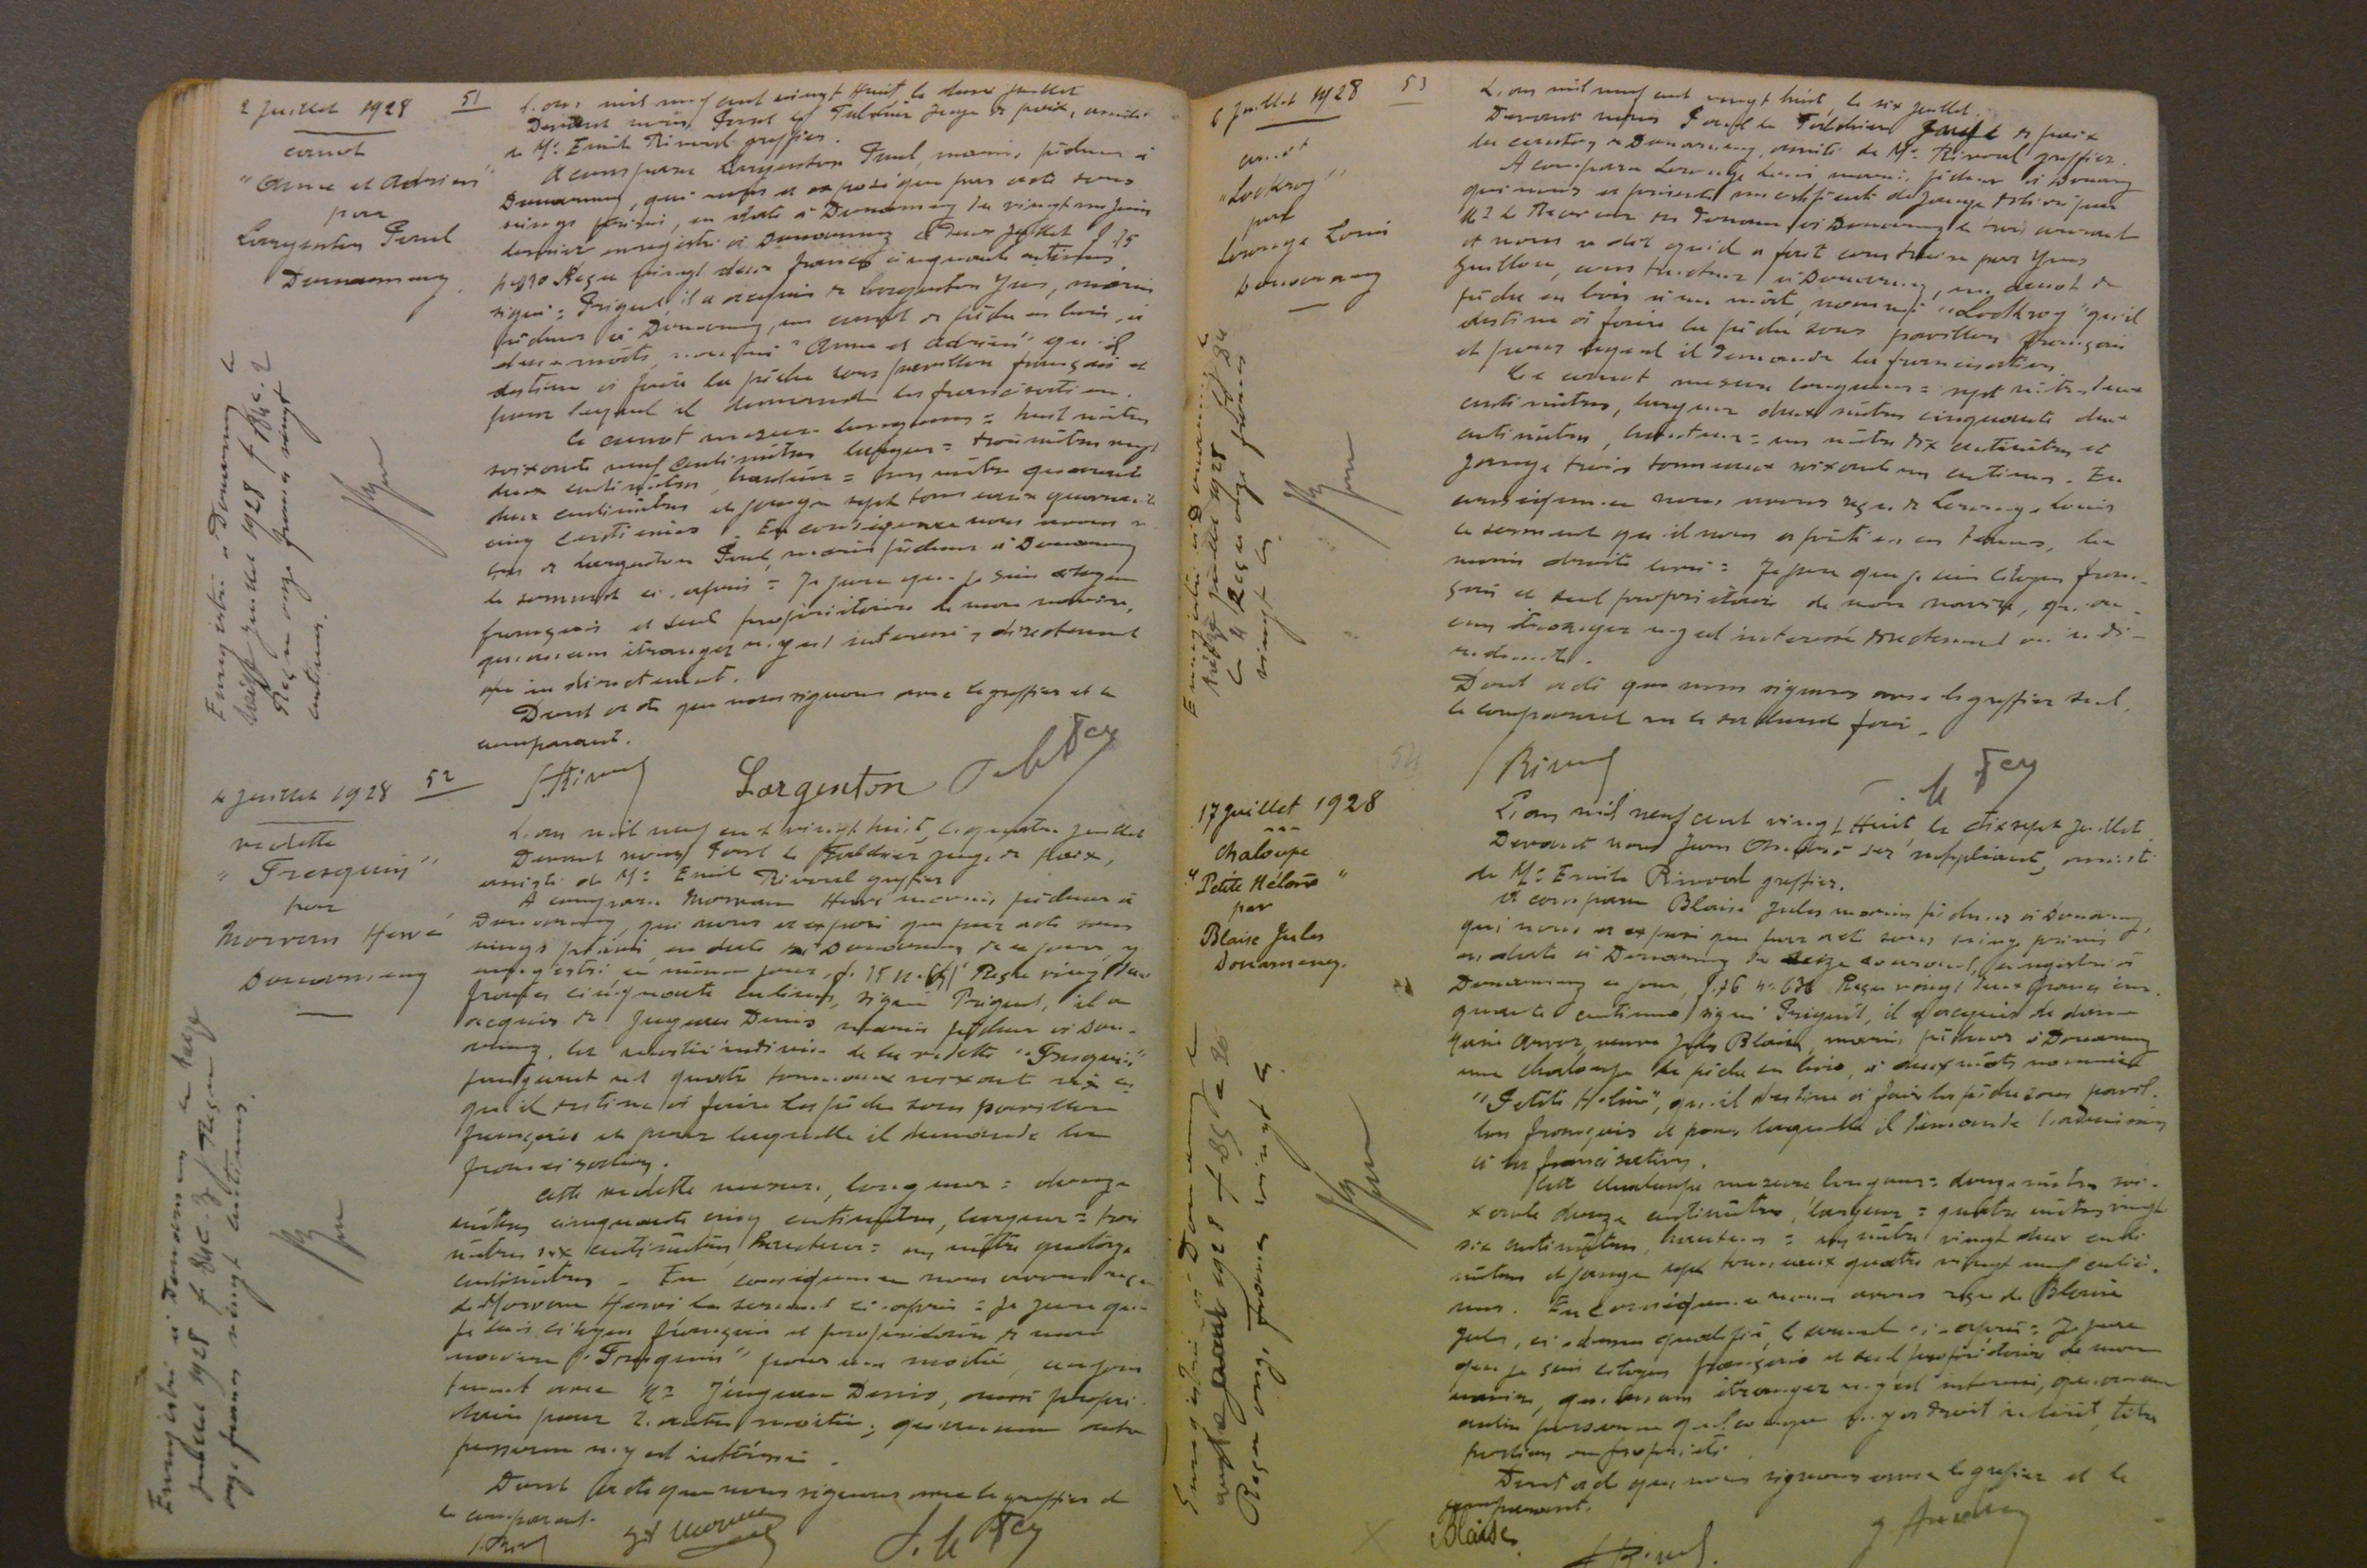 2 Juillet 1928
51
canot
"Anne et Adrien"
par
Largenton Paul
Douarnenez
Enregistré à Douarnenez le
treize juillet 1928 f 84 c. 2
Reçu onze francs vingt
centimes.
L'an mil neuf cent vingt huit le deux juillet
Devant nous, Paul Le Juge de paix, assisté
de Me Emile Rivoal greffier.
A comparu Largenton Paul, marin pêcheur à
Douarnenez, qui nous a exposé que par acte sous
seings privés, en date à Douarnenez du vingt juin
dernier enregistré à Douarnenez le deux juillet f. 75
Reçu vingt deux francs cinquante centimes,
signé : Prigent, il a acquis de Largenton Yves, marin
pêcheur à Douarnenez, un canot de pêche en bois, à
deux mâts, nommé "Anne et Adrien" qu'il
destine à faire la pêche sous pavillon français et
pour lequel il demande la francisation.
Ce canot mesure longueur = huit mètres
soixante neuf centimètres largeur = trois mètres vingt
deux centimètres, hauteur = un mètre quarante
deux centimètres et jauge sept tonneaux quarante
cinq centièmes. En conséquence nous avons
reçu de Largenton Paul, marin pêcheur à Douarnenez
le serment ci-après = Je jure que je suis citoyen
français et seul propriétaire de mon navire,
qu'aucun étranger n'y est intéressé directement
ou indirectement.
Dont acte que nous signons avec le greffier et le
comparant.
Rivoal Largenton
4 juillet 1928
52
vedette
"Fresquin"
par
Morvan Hervé
Douarnenez
Enregistré à Douarnenez le treize
juillet 1928 f. 84 c. 3 Reçu
onze francs vingt centimes.
L'an mil neuf cent vingt huit, le quatre juillet
Devant nous Paul Le juge de paix,
assisté de Me Emile Rivoal greffier
A comparu Morvan Hervé marin, pêcheur à
Douarnenez, qui nous a exposé que par acte sous
seings privés, en date à Douarnenez de ce jour, y
enregistré le même jour, f. 75 Reçu vingt deux
francs cinquante centimes, signé Prigent, il a
acquis de Denis marin pêcheur à Douar-
nenez, la moitié indivise de la vedette
jaugeant net quatre tonneaux soixante
qu'il destine à faire la pêche sous pavillon
français et pour laquelle il demande la
francisation.
Cette vedette mesure, longueur = douze
mètres cinquante cinq centimètres, largeur = trois
mètres six centimètres, hauteur = un mètre quatorze
centimètres. En conséquence nous avons reçu
de Morvan Hervé le serment ci-après = Je jure que
je suis citoyen français et propriétaire de mon
navire pour une moitié, conjoin-
tement avec Mr Denis, aussi proprié-
taire pour l'autre moitié ; qu'aucune autre
personne n'y est intéressée.
Dont acte que nous signons avec le greffier et
le comparant.
6 Juillet 1928
53
canot
"Lockroy"
par
Louis
Douarnenez
Enregistré à Douarnenez le
treize juillet 1928 f. 84
c. 4 Reçu onze francs
vingt c.
L'an mil neuf cent vingt huit, le six juillet.
Devant nous Paul Le Juge de paix
du canton de Douarnenez, assisté de Me Rivoal greffier.
A comparu Louis marin, pêcheur à Douarnenez
qui nous a présenté un certificat de jauge délivré par
Mr le Receveur des Douanes à Douarnenez le trois courant
et nous a dit qu'il a fait construire par Yves
Guillou, constructeur à Douarnenez, un canot de
pêche en bois à un mât, nommé "Lockroy" qu'il
destine à faire la pêche sous pavillon français
et pour lequel il demande la francisation.
Ce canot mesure longueur = sept mètres deux
centimètres, largeur deux mètres cinquante deux
centimètres, hauteur = un mètre dix centimètres et
jauge trois tonneaux soixante un centièmes. En
conséquence nous avons reçu de Louis
le serment qu'il nous a prêté en ces termes, la
main droite levée = Je jure que je suis citoyen fran-
çais et seul propriétaire de mon navire, qu'au-
cun étranger n'y est intéressé directement ou indi-
rectement.
Dont acte que nous signons avec le greffier seul,
le comparant ne le sachant faire.
Rivoal
17 juillet 1928
(54)
chaloupe
"Petite Hélène"
par
Blaise Jules
Douarnenez.
Enregistré à Douarnenez le
août 1928 f 85 c 20
Reçu onze francs vingt c.
L'an mil neuf cent vingt huit le dix sept juillet
Devant nous Jean suppléant, assisté
de Me Emile Rivoal greffier.
A comparu Blaise Jules marin pêcheur à Douarnenez,
qui nous a exposé que par acte sous seings privés
en date à Douarnenez du seize courant, enregistré à
Douarnenez ce jour, f. 76 n° 636 Reçu vingt deux francs cin-
quante centimes signé Prigent, il a acquis de dame
Marie veuve Jules Blaise, marin pêcheur à Douarnenez
une chaloupe de pêche en bois, à deux mâts nommée
"Petite Hélène", qu'il destine à faire la pêche sous pavil-
lon français et pour laquelle il demande l'admission
à la francisation.
Cette chaloupe mesure longueur = douze mètres soi-
xante douze centimètres, largeur = quatre mètres vingt
six centimètres, hauteur = un mètre vingt deux centi-
mètres et jauge sept tonneaux quatre vingt neuf centiè-
mes. En conséquence nous avons reçu de Blaise
Jules, ci-dessus qualifié, le serment ci-après = Je jure
que je suis citoyen français et seul propriétaire de mon
navire, qu'aucun étranger n'y est intéressé, qu'aucune
autre personne quelconque n'y a droit, intérêt, titre
portion ou propriété.
Dont acte que nous signons avec le greffier et le
comparant.
Blaise
Rivoal